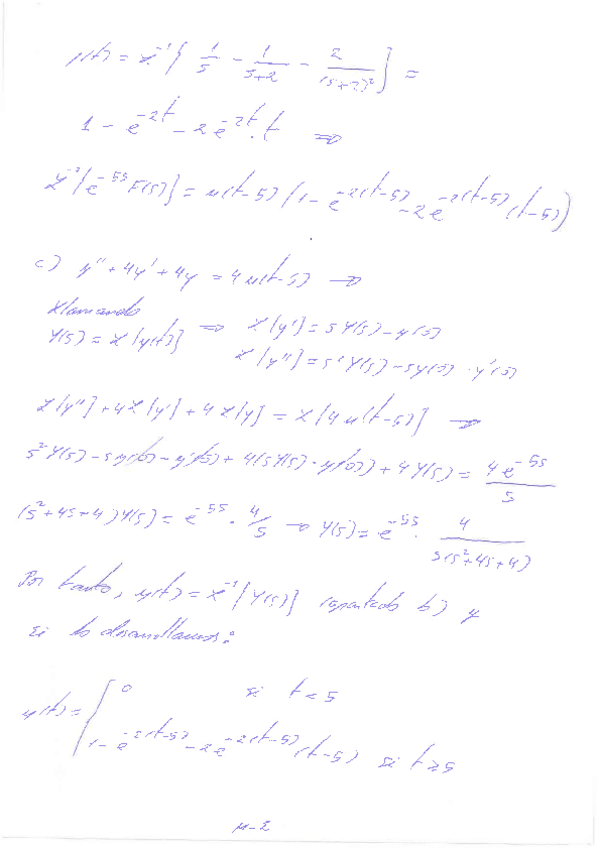 y(t) = ℒ⁻¹{ 1/s − 1/(s+2) − 2/(s+2)² } =
1 − e^{−2t} − 2e^{−2t}·t ⇒
ℒ⁻¹{e^{−5s}F(s)} = u(t−5)(1 − e^{−2(t−5)} − 2e^{−2(t−5)}(t−5))
c) y'' + 4y' + 4y = 4u(t−5) ⇒
Llamando
Y(s) = ℒ{y(t)} ⇒ ℒ{y'} = sY(s) − y(0)
ℒ{y''} = s²Y(s) − sy(0) − y'(0)
ℒ{y''} + 4ℒ{y'} + 4ℒ{y} = ℒ{4u(t−5)} ⇒
s²Y(s) − sy(0) − y'(0) + 4(sY(s) − y(0)) + 4Y(s) = 4e^{−5s}/s
(s²+4s+4)Y(s) = e^{−5s}·4/s ⇒ Y(s) = e^{−5s}·4/(s(s²+4s+4))
Por tanto, y(t) = ℒ⁻¹{Y(s)} (apartado b) y
si lo desarrollamos:
y(t) = { 0 si t < 5
1 − e^{−2(t−5)} − 2e^{−2(t−5)}(t−5) si t ≥ 5